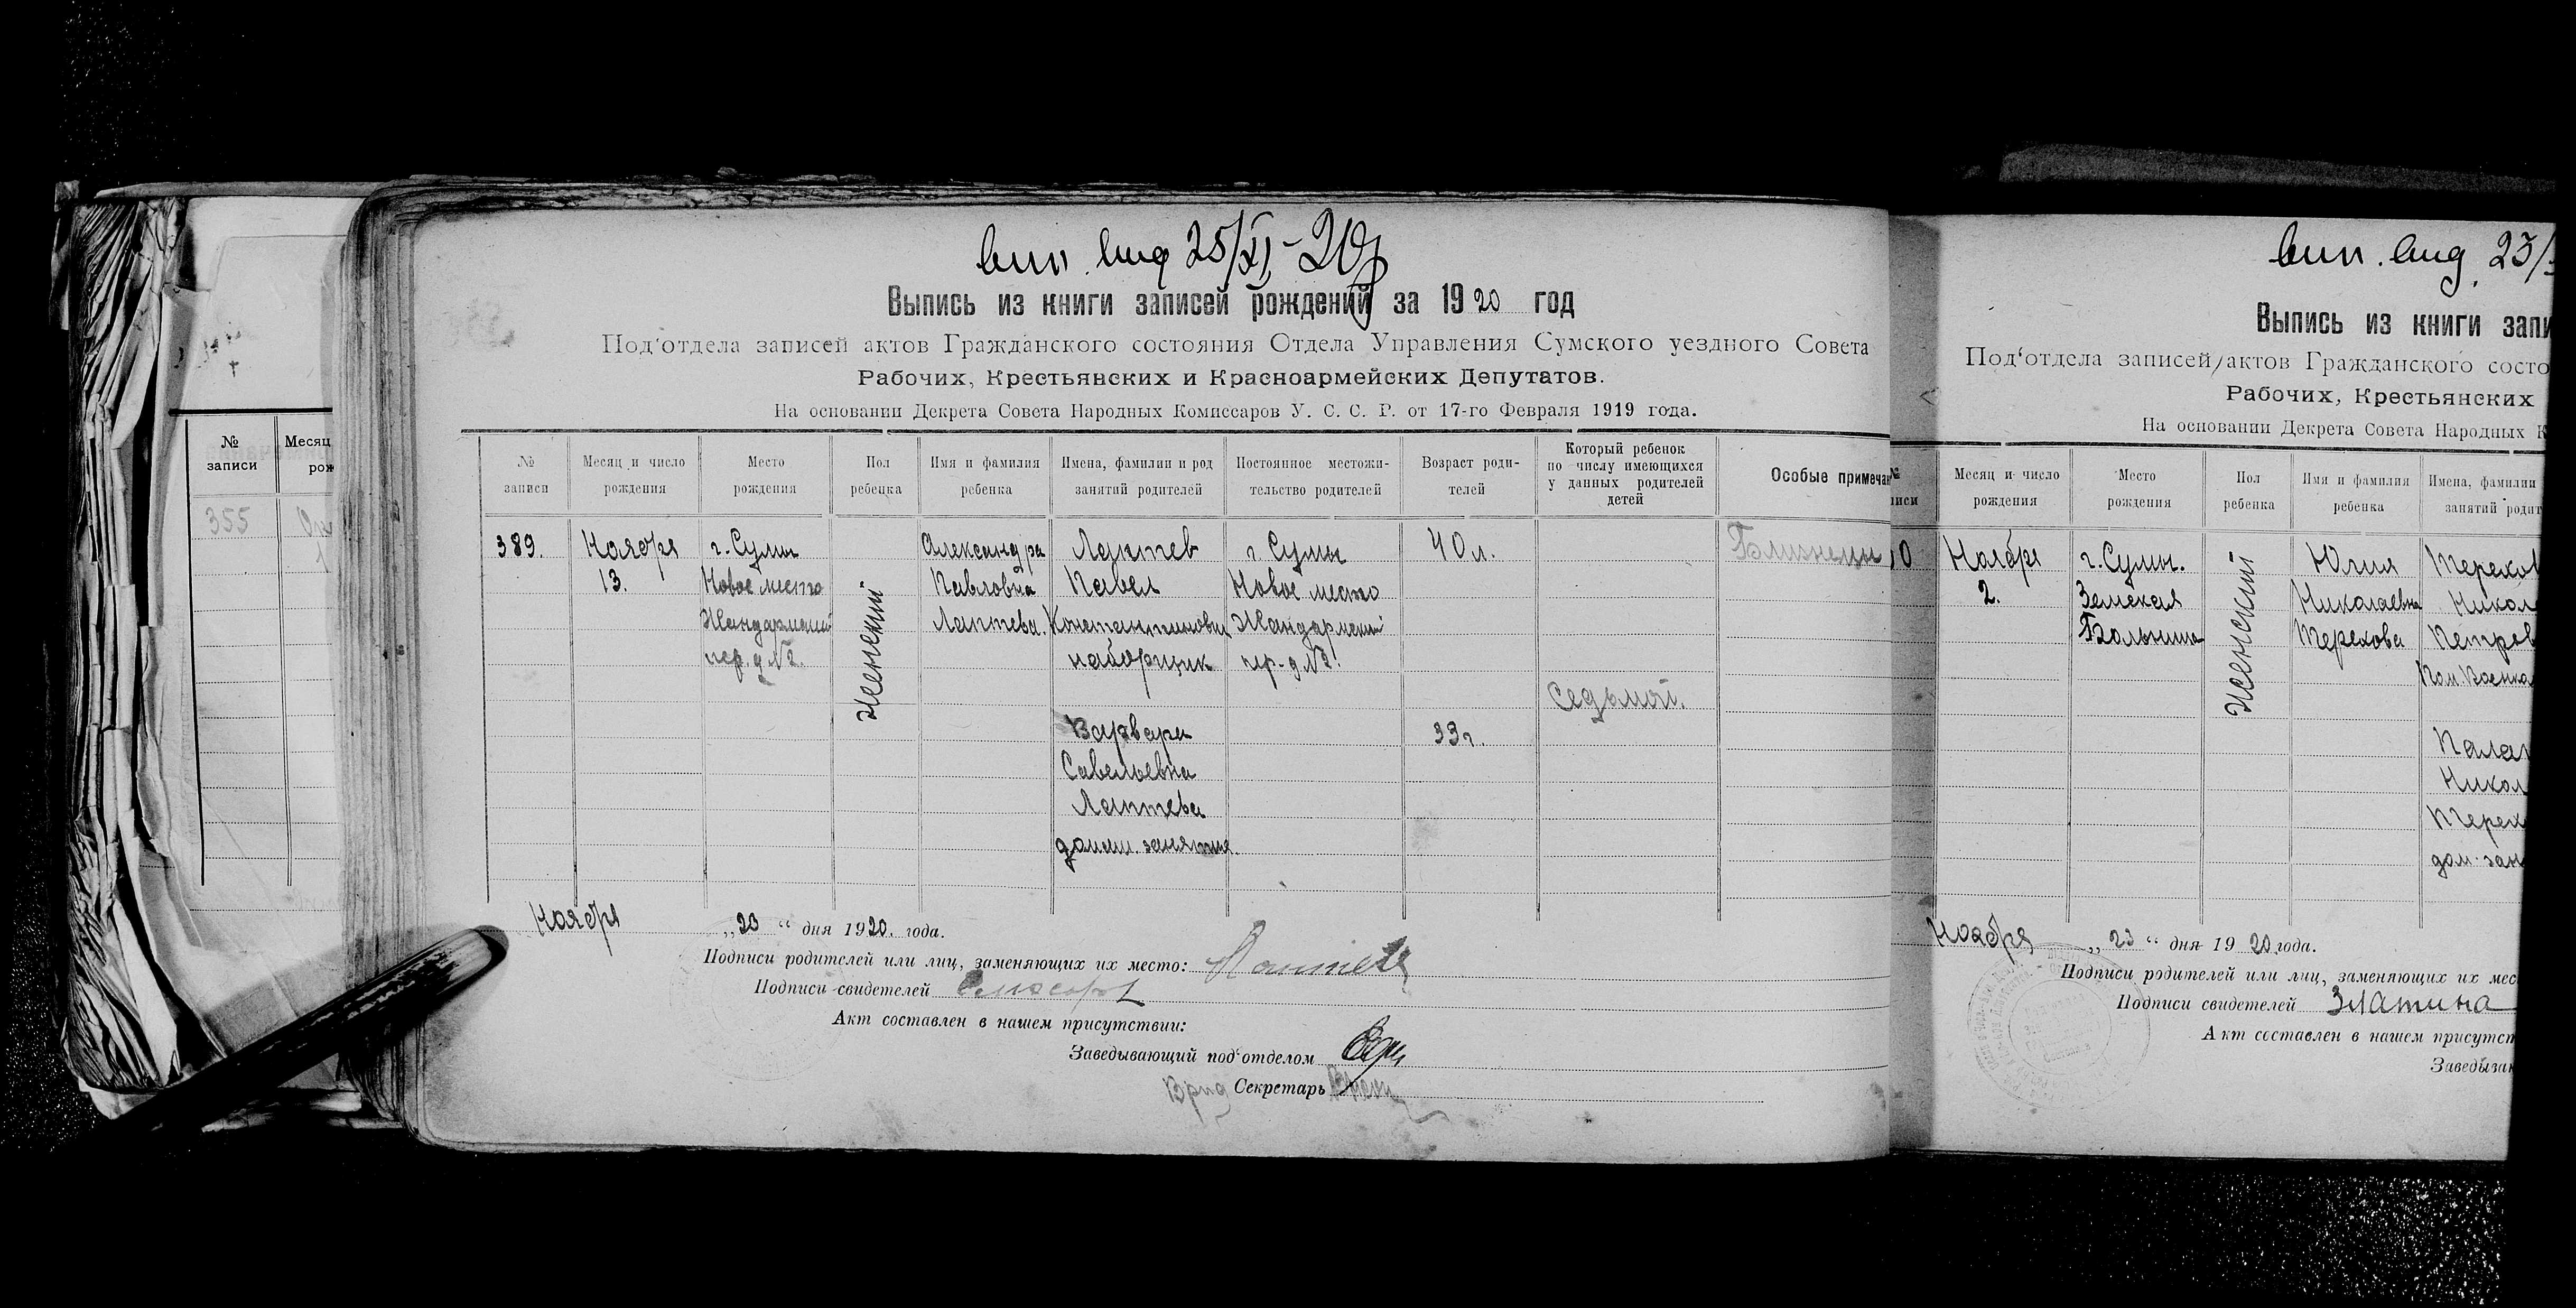 №
записи
Месяц
рож
355
вып. выд 25/XI-20г
Выпись из книги записей рождений за 1920 год
Под'отдела записей актов Гражданского состояния Отдела Управления Сумского уездного Совета
Рабочих, Крестьянских и Красноармейских Депутатов.
На основании Декрета Совета Народных Комиссаров У. С. С. Р. от 17-го Февраля 1919 года.
№
записи
Месяц и число
рождения
Место
рождения
Пол
ребенка
Имя и фамилия
ребенка
Имена, фамилии и род
занятий родителей
Постоянное местожи-
тельство родителей
Возраст роди-
телей
Который ребенок
по числу имеющихся
у данных родителей
детей
Особые примечан
389.
Ноября
13.
г. Сумы
Новое место
Жандармский
пер. д №2.
женский
Александра
Павловна
Лаптева.
Лаптев
Павел
Константинович
наборщик
Варвара
Савельевна
Лаптева
домаш. занятия.
г. Сумы
Новое место
Жандармский
пер. д №2.
40 л.
33 г.
Седьмой.
Близнецы
Ноября „23“ дня 1920. года.
Подписи родителей или лиц, заменяющих их место: Лаптев
Подписи свидетелей
Акт составлен в нашем присутствии:
Заведывающий под'отделом
Врид Секретарь
вып. выд. 23/
Выпись из книги запи
Под'отдела записей актов Гражданского состо
Рабочих, Крестьянских
На основании Декрета Совета Народных К
№
писи
Месяц и число
рождения
Место
рождения
Пол
ребенка
Имя и фамилия
ребенка
Имена, фамилии
занятий родит
0
Ноября
2.
г. Сумы.
Земская
Больница
женский
Юлия
Николаевна
Терехова
Терехов
Никол
Петров
Пом. Военко
Палаг
Никол
Терех
дом. зан
Ноября „23“ дня 1920 года.
Подписи родителей или лиц, заменяющих их мес
Подписи свидетелей Златина
Акт составлен в нашем присутст
Заведыва